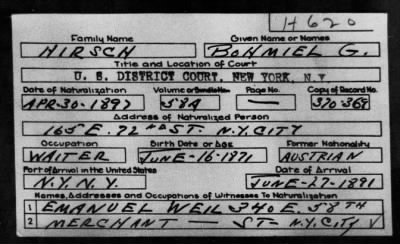 H 620
Family Name Given Name or Names
HIRSCH BOHMIEL G.
Title and Location of Court
U. S. DISTRICT COURT, NEW YORK, N.Y.
Date of Naturalization Volume or Bundle No. Page No. Copy of Record No.
APR-30-1897 58A — 370-368
Address of Naturalized Person
165 E. 72 ND ST. N.Y.CITY
Occupation Birth Date or Age Former Nationality
WAITER JUNE-16-1871 AUSTRIAN
Port of Arrival in the United States Date of Arrival
N.Y. N.Y. JUNE-27-1891
Names, Addresses and Occupations of Witnesses To Naturalization
1 EMANUEL WEIL 340 E. 58TH
2 MERCHANT — ST. N.Y.CITY V